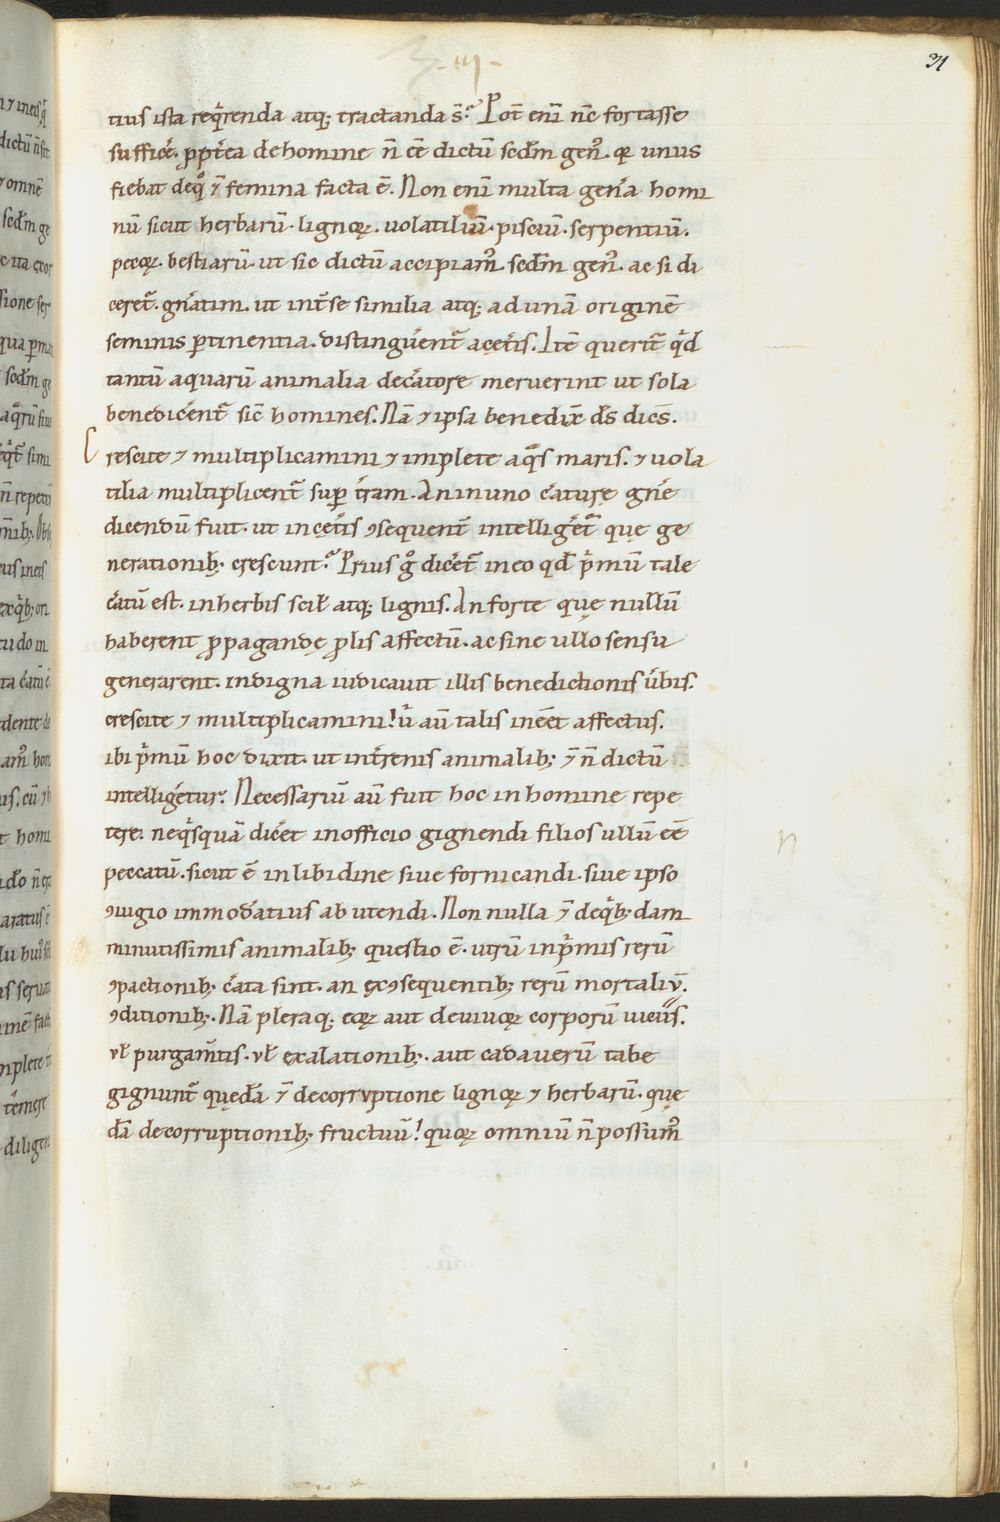 ·iii·
31
tius ista reqͥrenda atq; tractanda s̄. Pot̄ eni᷎ nc̄ fortasse
sufficé. ꝓpt́ea de homine n̄ eē dictū scd̄m gen᷒. qꝛ unus
fiebat de qͦ ⁊̄ femina facta ē. Non enī multa geńa homi
nū sicut herbarū· lignoꝝ. uolatiliū· pisciū. serpentiū.
pecoꝝ. bestiarū· ut sic dictū accipiam᷒. scd̄m gen᷒. ac si di
ceret᷑. gńatim. ut int̄ se similia atq; ad unā originē
seminis ꝑtinentia. distingúent᷑ a cet́is. Itē querit᷑ qͥd
tantū aquarū animalia de c᷑atore meruerint ut sola
benedićent᷑ sic̄ homines. Nā ⁊ ipsa benedix̄ d̄s dicēs.
Crescite ⁊ multiplicamini ⁊ implete aqͣs maris. ⁊ uola
tilia multiplicent᷑ suꝑ t́ram. An in uno c᷑aturę gńe
dicendū fuit. ut in cęt́is ꝯsequent᷑ intelligét᷑ quę ge
nerationib; crescunt. Prius gͦ dićet᷑ in eo qd̄ pͥmū tale
c᷑atū est. in herbis scił atq; lignis. An forte quę nullū
haberent ꝓpagandę ꝓlis affectū. ac sine ullo sensu
generarent. indigna iudicauit illis benedictionis úbis.
crescite ⁊ multiplicamini! ú aū talis inēet affectus.
ibi pͥmū hoc dixit. ut in t́renis animalib; ⁊̄ n̄ dictū
intelligétur. Necessariū aū fuit hoc in homine repe
tere. ne qͥsquā dićet in officio gignendi filios ullū eē
peccatū. sicut ē in libidine siue fornicandi. siue ipso
ꝯiugio immod́atius abutendi. Non nulla ⁊̄ de qͥb;dam
minutissimis animalib; questio ē. utrū in pͥmis rerū
ꝯpactionib; c᷑ata sint. an ex ꝯsequentib; rerū mortaliū.
ꝯditionib;. Nā pleraq; eoꝝ aut de uiuoꝝ corporū uiciis.
vł purgam̄tis. vł exalationib;. aut cadauerū tabe
gignunt᷑ quędā ⁊̄ de corruptione lignoꝝ ⁊ herbarū. quę
dā de corruptionib; fructuū! quoꝝ omniū n̄ possum᷒